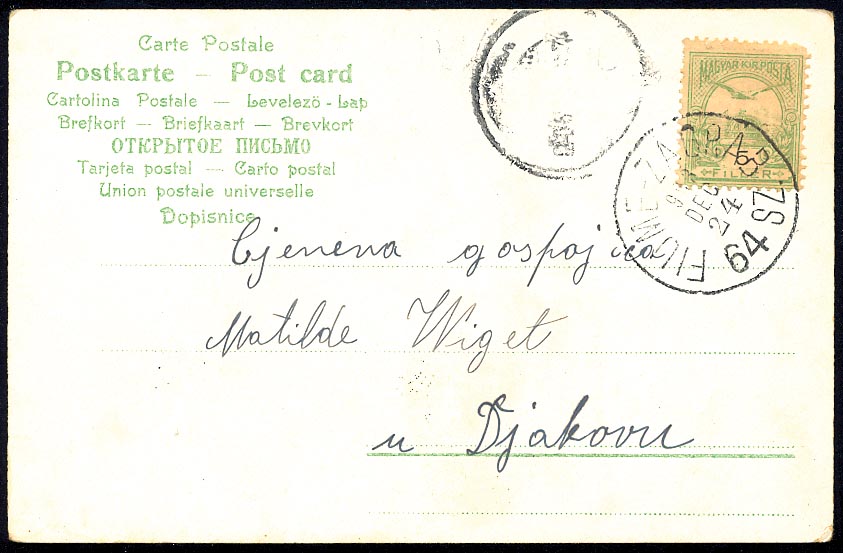 Carte Postale
Postkarte — Post card
Cartolina Postale — Levelező-Lap
Brefkort — Briefkaart — Brevkort
ОТКРЫТОЕ ПИСЬМО
Tarjeta postal — Carto postal
Union postale universelle
Dopisnice
MAGYAR KIR. POSTA
5
FILLÉR
FIUME-ZAGRAB
DEC
24
ZS
64
Cjenena gospojica
Matilde Wiget
u Djakovu